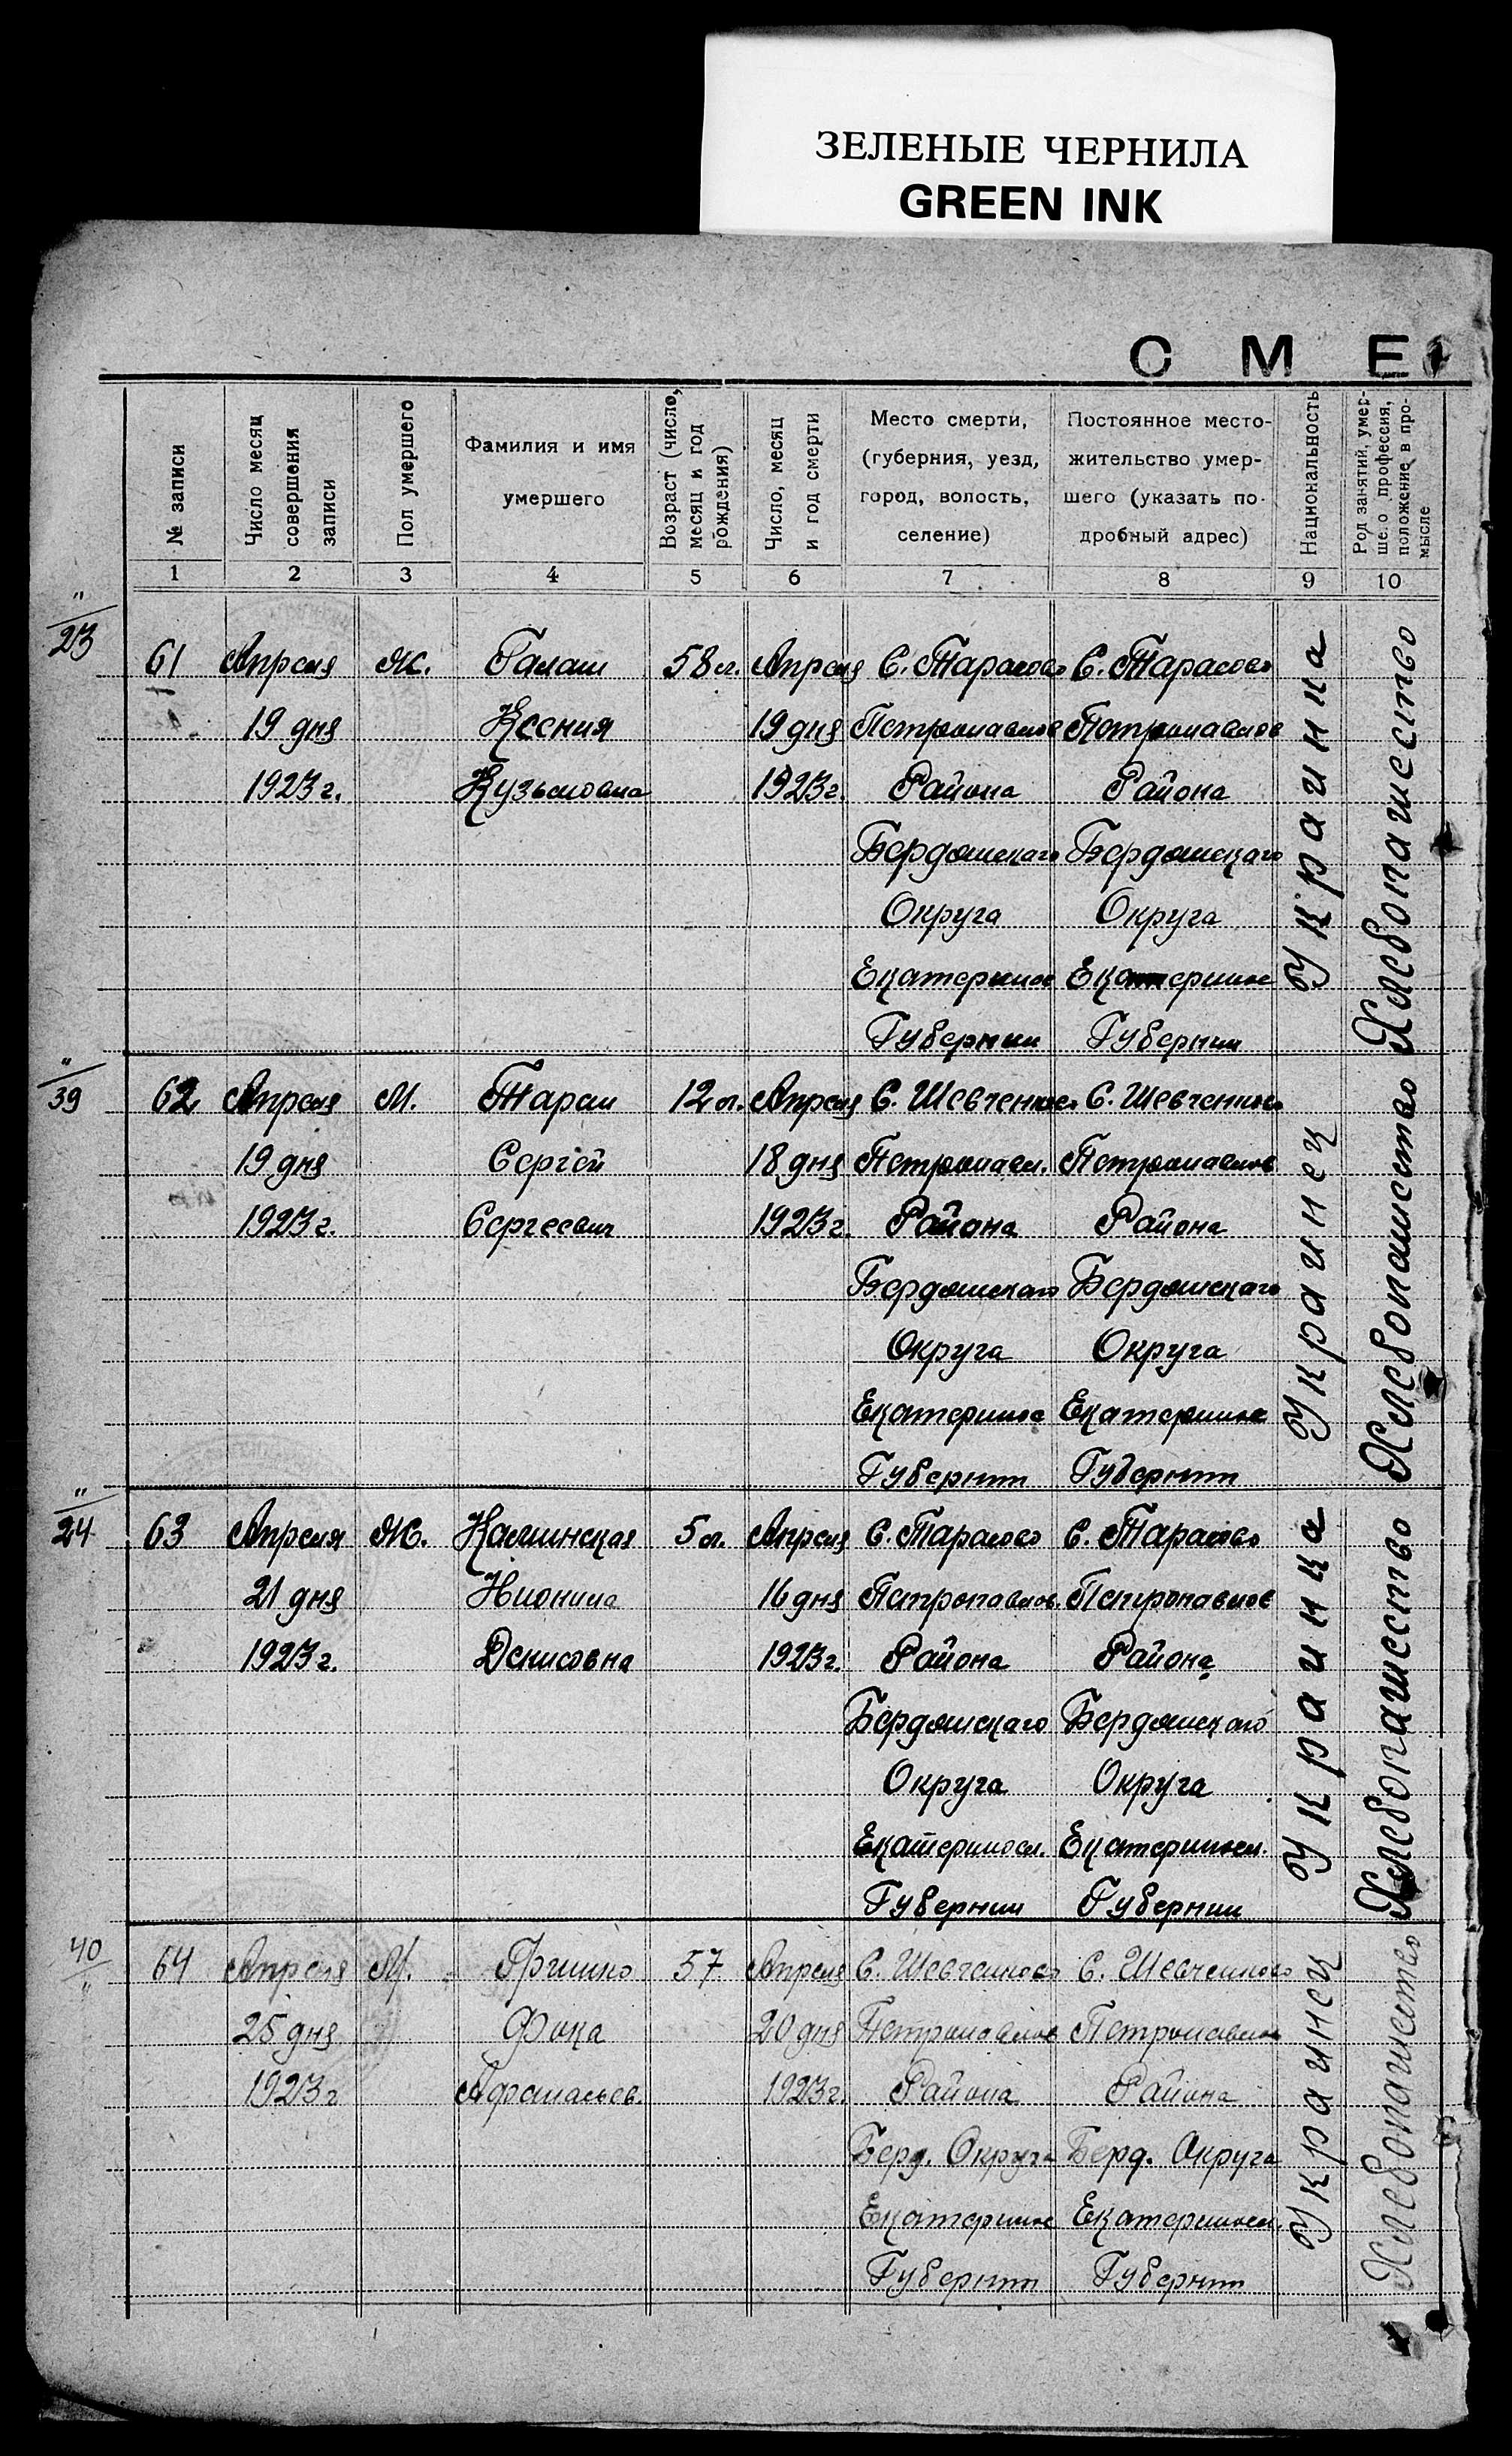 ЗЕЛЕНЫЕ ЧЕРНИЛА
GREEN INK
СМЕ
№ записи
Число месяц совершения записи
Пол умершего
Фамилия и имя умершего
Возраст (число, месяц и год рождения)
Число, месяц и год смерти
Место смерти, (губерния, уезд, город, волость, селение)
Постоянное место-жительство умер-шего (указать по-дробный адрес)
Национальность
Род занятий, умер-шего профессия, положение в про-мысле
1 2 3 4 5 6 7 8 9 10
" 23
61 Апреля Ж. Галаш 58 л. Апреля С. Тарасово С. Тарасово Украинка Хлебопашество
19 дня Ксения 19 дня Петропавлов Петропавлов
1923 г. Кузьмовна 1923 г. Района Района
Бердянскаго Бердянскаго
Округа Округа
Екатеринос Екатеринос
Губернии Губернии
" 39
62 Апреля М. Таран 12 л. Апреля С. Шевченково С. Шевченково Украинец Хлебопашество
19 дня Сергей 18 дня Петропавл. Петропавлов
1923 г. Сергеевич 1923 г. Района Района
Бердянскаго Бердянскаго
Округа Округа
Екатеринос Екатеринос
Губернии Губернии
" 24
63 Апреля Ж. Калинская 5 л. Апреля С. Тарасово С. Тарасово Украинка Хлебопашество
21 дня 16 дня Петропавлов. Петропавлов
1923 г. Денисовна 1923 г. Района Района
Бердянскаго Бердянскаго
Округа Округа
Екатериносл. Екатериносл.
Губернии Губернии
40 "
64 Апреля М. 57 Апреля С. Шевченково С. Шевченково Украинец Хлебопашество
25 дня Фока 20 дня Петропавлов Петропавлов
1923 г Афанасьев. 1923 г. Района Района
Берд. Округа Берд. Округа
Екатеринос Екатериносл.
Губернии Губернии